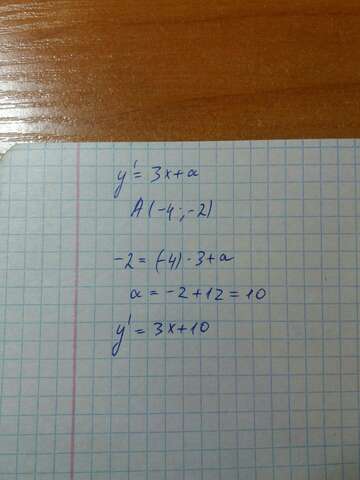 y' = 3x+a
A (-4 ; -2)
-2 = (-4) · 3 + a
a = -2 + 12 = 10
y' = 3x+10